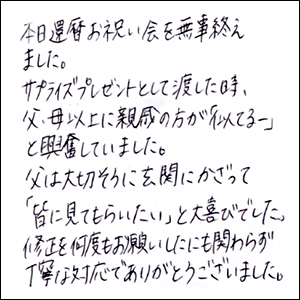 本日還暦お祝い会を無事終え
ました。
サプライズプレゼントとして渡した時、
父、母以上に親戚の方が「似てるー」
と興奮していました。
父は大切そうに玄関にかざって
「皆に見てもらいたい」と大喜びでした。
修正を何度もお願いしたにも関わらず
丁寧な対応でありがとうございました。